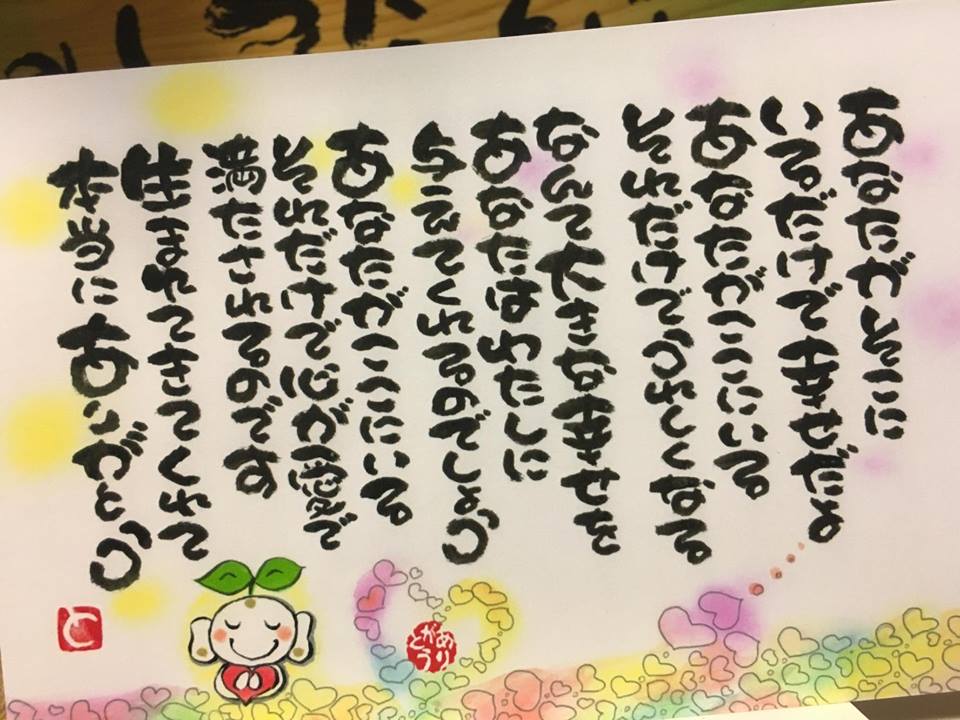 あなたがそこに
いるだけで幸せだよ
あなたがここにいる
それだけでうれしくなる
なんて大きな幸せを
あなたはわたしに
与えてくれるのでしょう
あなたがここにいる
それだけで心が愛で
満たされるのです
生まれてきてくれて
本当にありがとう
ありがとう
と